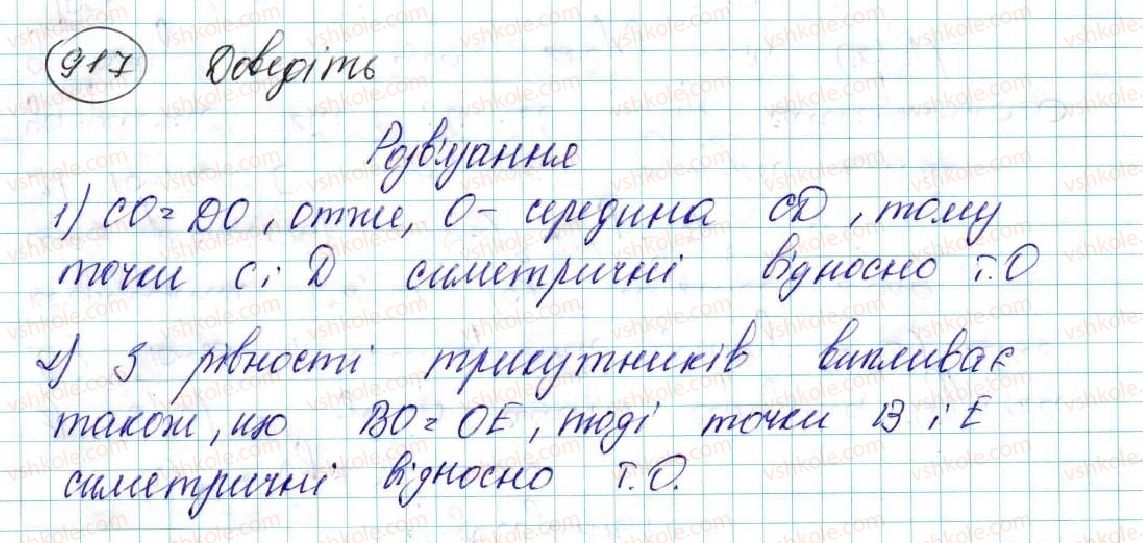 917 Доведіть
Розв'язання
1) CO = DO, отже, O – середина CD, тому
точки C і D симетричні відносно т. O
2) З рівності трикутників випливає
також, що BO = OE, тоді точки B і E
симетричні відносно т. O.